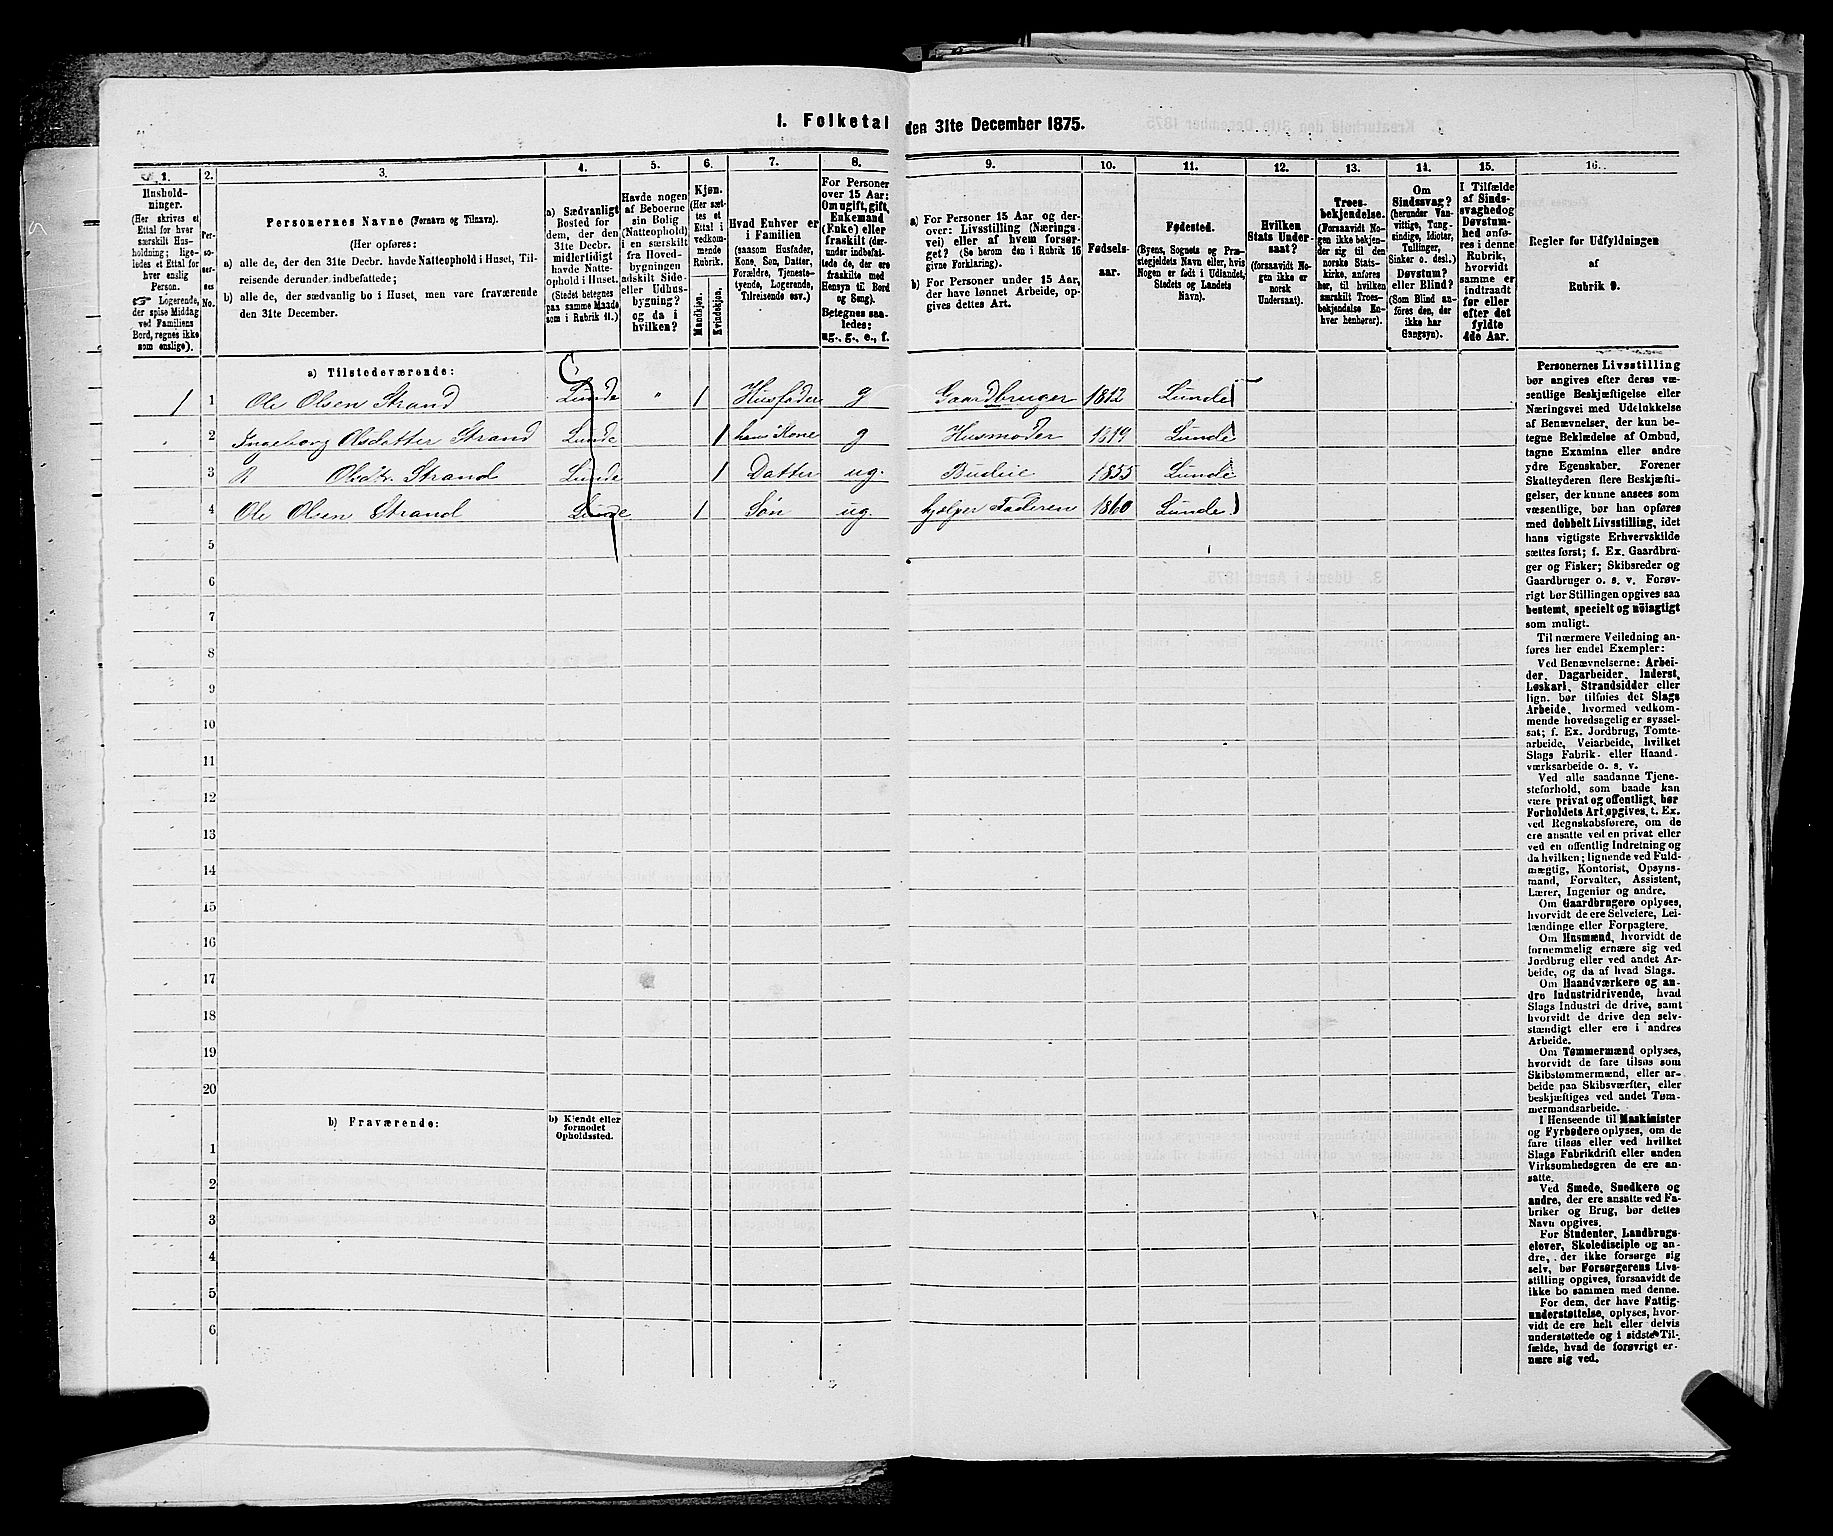 I. Folketal den 31te December 1875.
1.
2.
3.
4.
5.
6.
7.
8.
9.
10.
11.
12.
13.
14.
15.
16.
Hushold-
ninger.
(Her skrives et
Ettal for hver
særskilt Hus-
holdning; lige-
ledes et Ettal for
hver enslig
Person.
☞ Logerende,
der spise Middag
ved Familiens
Bord, regnes ikke
som enslige).
Per-
so-
ner-
nes
No.
Personernes Navne (Fornavn og Tilnavn).
(Her opføres:
a) alle de, der den 31te Decbr. havde Natteophold i Huset, Til-
reisende derunder indbefattede;
b) alle de, der sædvanlig bo i Huset, men vare fraværende
den 31te December.
a) Sædvanligt
Bosted for
dem, der den
31te Decbr.
midlertidigt
havde Natte-
ophold i Huset.
(Stedet betegnes
paa samme Maade
som i Rubrik 11.)
Havde nogen
af Beboerne
sin Bolig
(Natteophold)
i en særskilt
fra Hoved-
bygningen
adskilt Side-
eller Udhus-
bygning?
og da i
hvilken?
Kjøn.
(Her sæt-
tes et
Ettal i
vedkom-
mende
Rubrik.
Mandkjøn.
Kvindekjøn.
Hvad Enhver er
i Familien
(saasom Husfader,
Kone, Søn, Datter,
Forældre, Tjeneste-
tyende, Logerende,
Tilreisende osv.)
For Personer
over 15 Aar:
Om ugift, gift,
Enkemand
(Enke) eller
fraskilt (der-
under indbefat-
tede de, der ere
fraskilte med
Hensyn til Bord
og Seng).
Betegnes saa-
ledes:
ug., g., e., f.
a) For Personer 15 Aar og der-
over: Livsstilling (Nærings-
vei) eller af hvem forsør-
get? (Se herom den i Rubrik 16
givne Forklaring).
b) For Personer under 15 Aar,
der have lønnet Arbeide, op-
gives dettes Art.
Fødsels-
aar.
Fødested.
(Byens, Sognets og Præ-
stegjeldets Navn eller, hvis
Nogen er født i Udlandet,
Stedets og Landets
Navn).
Hvilken
Stats Under-
saat?
(forsaavidt No-
gen ikke er
norsk
Undersaat).
Troes-
bekjendelse.
(Forsaavidt No-
gen ikke bekjen-
der sig til den
norske Stats-
kirke, anføres
her, til hvilken
særskilt Troes-
bekjendelse En-
hver henhører).
Om
Sindssvag?
(herunder Van-
vittige, Tung-
sindige, Idioter,
Tullinger,
Sinker o. desl.)
Døvstum?
eller Blind?
(Som Blind an-
føres den, der
ikke har
Gangsyn).
I Tilfælde
af Sinds-
svaghed og
Døvstum-
hed anfø-
res i denne
Rubrik,
hvorvidt
samme er
indtraadt
før eller
efter det
fyldte
4de Aar.
Regler for Udfyldningen
af
Rubrik 9.
a) Tilstedeværende:
1 1 Ole Olsen Strand Lunde " 1 Husfader g Gaardbruger 1812 Lunde
2 Ingeborg Olsdatter Strand Lunde 1 hans Kone g Husmoder 1819 Lunde
3 Olsdtr. Strand Lunde 1 Datter ug. 1855 Lunde
4 Ole Olsen Strand Lunde 1 Søn ug. hjælper Faderen 1860 Lunde
5
6
7
8
9
10
11
12
13
14
15
16
17
18
19
20
b) Fraværende:
b) Kjendt eller
formodet
Opholdssted.
1
2
3
4
5
6
Personernes Livsstilling
bør angives efter deres væ-
sentlige Beskjæftigelse eller
Næringsvei med Udelukkelse
af Benævnelser, der kun be-
tegne Beklædelse af Ombud,
tagne Examina eller andre
ydre Egenskaber. Forener
Skatteyderen flere Beskjæfti-
gelser, der kunne ansees som
væsentlige, bør han opføres
med dobbelt Livsstilling, idet
hans vigtigste Erhvervskilde
sættes først; f. Ex. Gaardbru-
ger og Fisker; Skibsreder og
Gaardbruger o. s. v. Forøv-
rigt bør Stillingen opgives saa
bestemt, specielt og nöiagtigt
som muligt.
Til nærmere Veiledning an-
føres her endel Exempler:
Ved Benævnelserne: Arbei-
der, Dagarbeider, Inderst,
Løskarl, Strandsidder eller
lign. bør tilføies det Slags
Arbeide, hvormed vedkom-
mende hovedsagelig er syssel-
sat; f. Ex. Jordbrug, Tomte-
arbeide, Veiarbeide, hvilket
Slags Fabrik- eller Haand-
værksarbeide o. s. v.
Ved alle saadanne Tjene-
steforhold, som baade kan
være privat og offentligt, bør
Forholdets Art opgives, t. Ex.
ved Regnskabsførere, om de
ere ansatte ved en privat eller
ved en offentlig Indretning og
da hvilken; lignende ved Fuld-
mægtig, Kontorist, Opsyns-
mand, Forvalter, Assistent,
Lærer, Ingeniør og andre.
Om Gaardbrugere oplyses,
hvorvidt de ere Selveiere, Lei-
lændinge eller Forpagtere.
Om Husmænd, hvorvidt de
fornemmelig ernære sig ved
Jordbrug eller ved andet Ar-
beide, og da af hvad Slags.
Om Haandværkere og an-
dre Industridrivende, hvad
Slags Industri de drive, samt
hvorvidt de drive den selv-
stændigt eller ere i andres
Arbeide.
Om Tømmermænd oplyses,
hvorvidt de fare tilsøs som
Skibstømmermænd, eller ar-
beide paa Skibsværfter, eller
beskjæftiges ved andet Tøm-
mermandsarbeide.
I Henseende til Maskinister
og Fyrbødere oplyses, om de
fare tilsøs eller ved hvilket
Slags Fabrikdrift eller anden
Virksomhedsgren de ere an-
satte.
Ved Smede, Snedkere og
andre, der ere ansatte ved Fa-
briker og Brug, bør dettes
Navn opgives.
For Studenter, Landbrugs-
elever, Skoledisciple og an-
dre, der ikke forsørge sig
selv, bør Forsørgerens Livs-
stilling opgives, forsaavidt de
ikke bo sammen med denne.
For dem, der have Fattig-
understøttelse, oplyses, hvor-
vidt de ere helt eller delvis
understøttede og i sidste Til-
fælde, hvad de forøvrigt er-
nære sig ved.